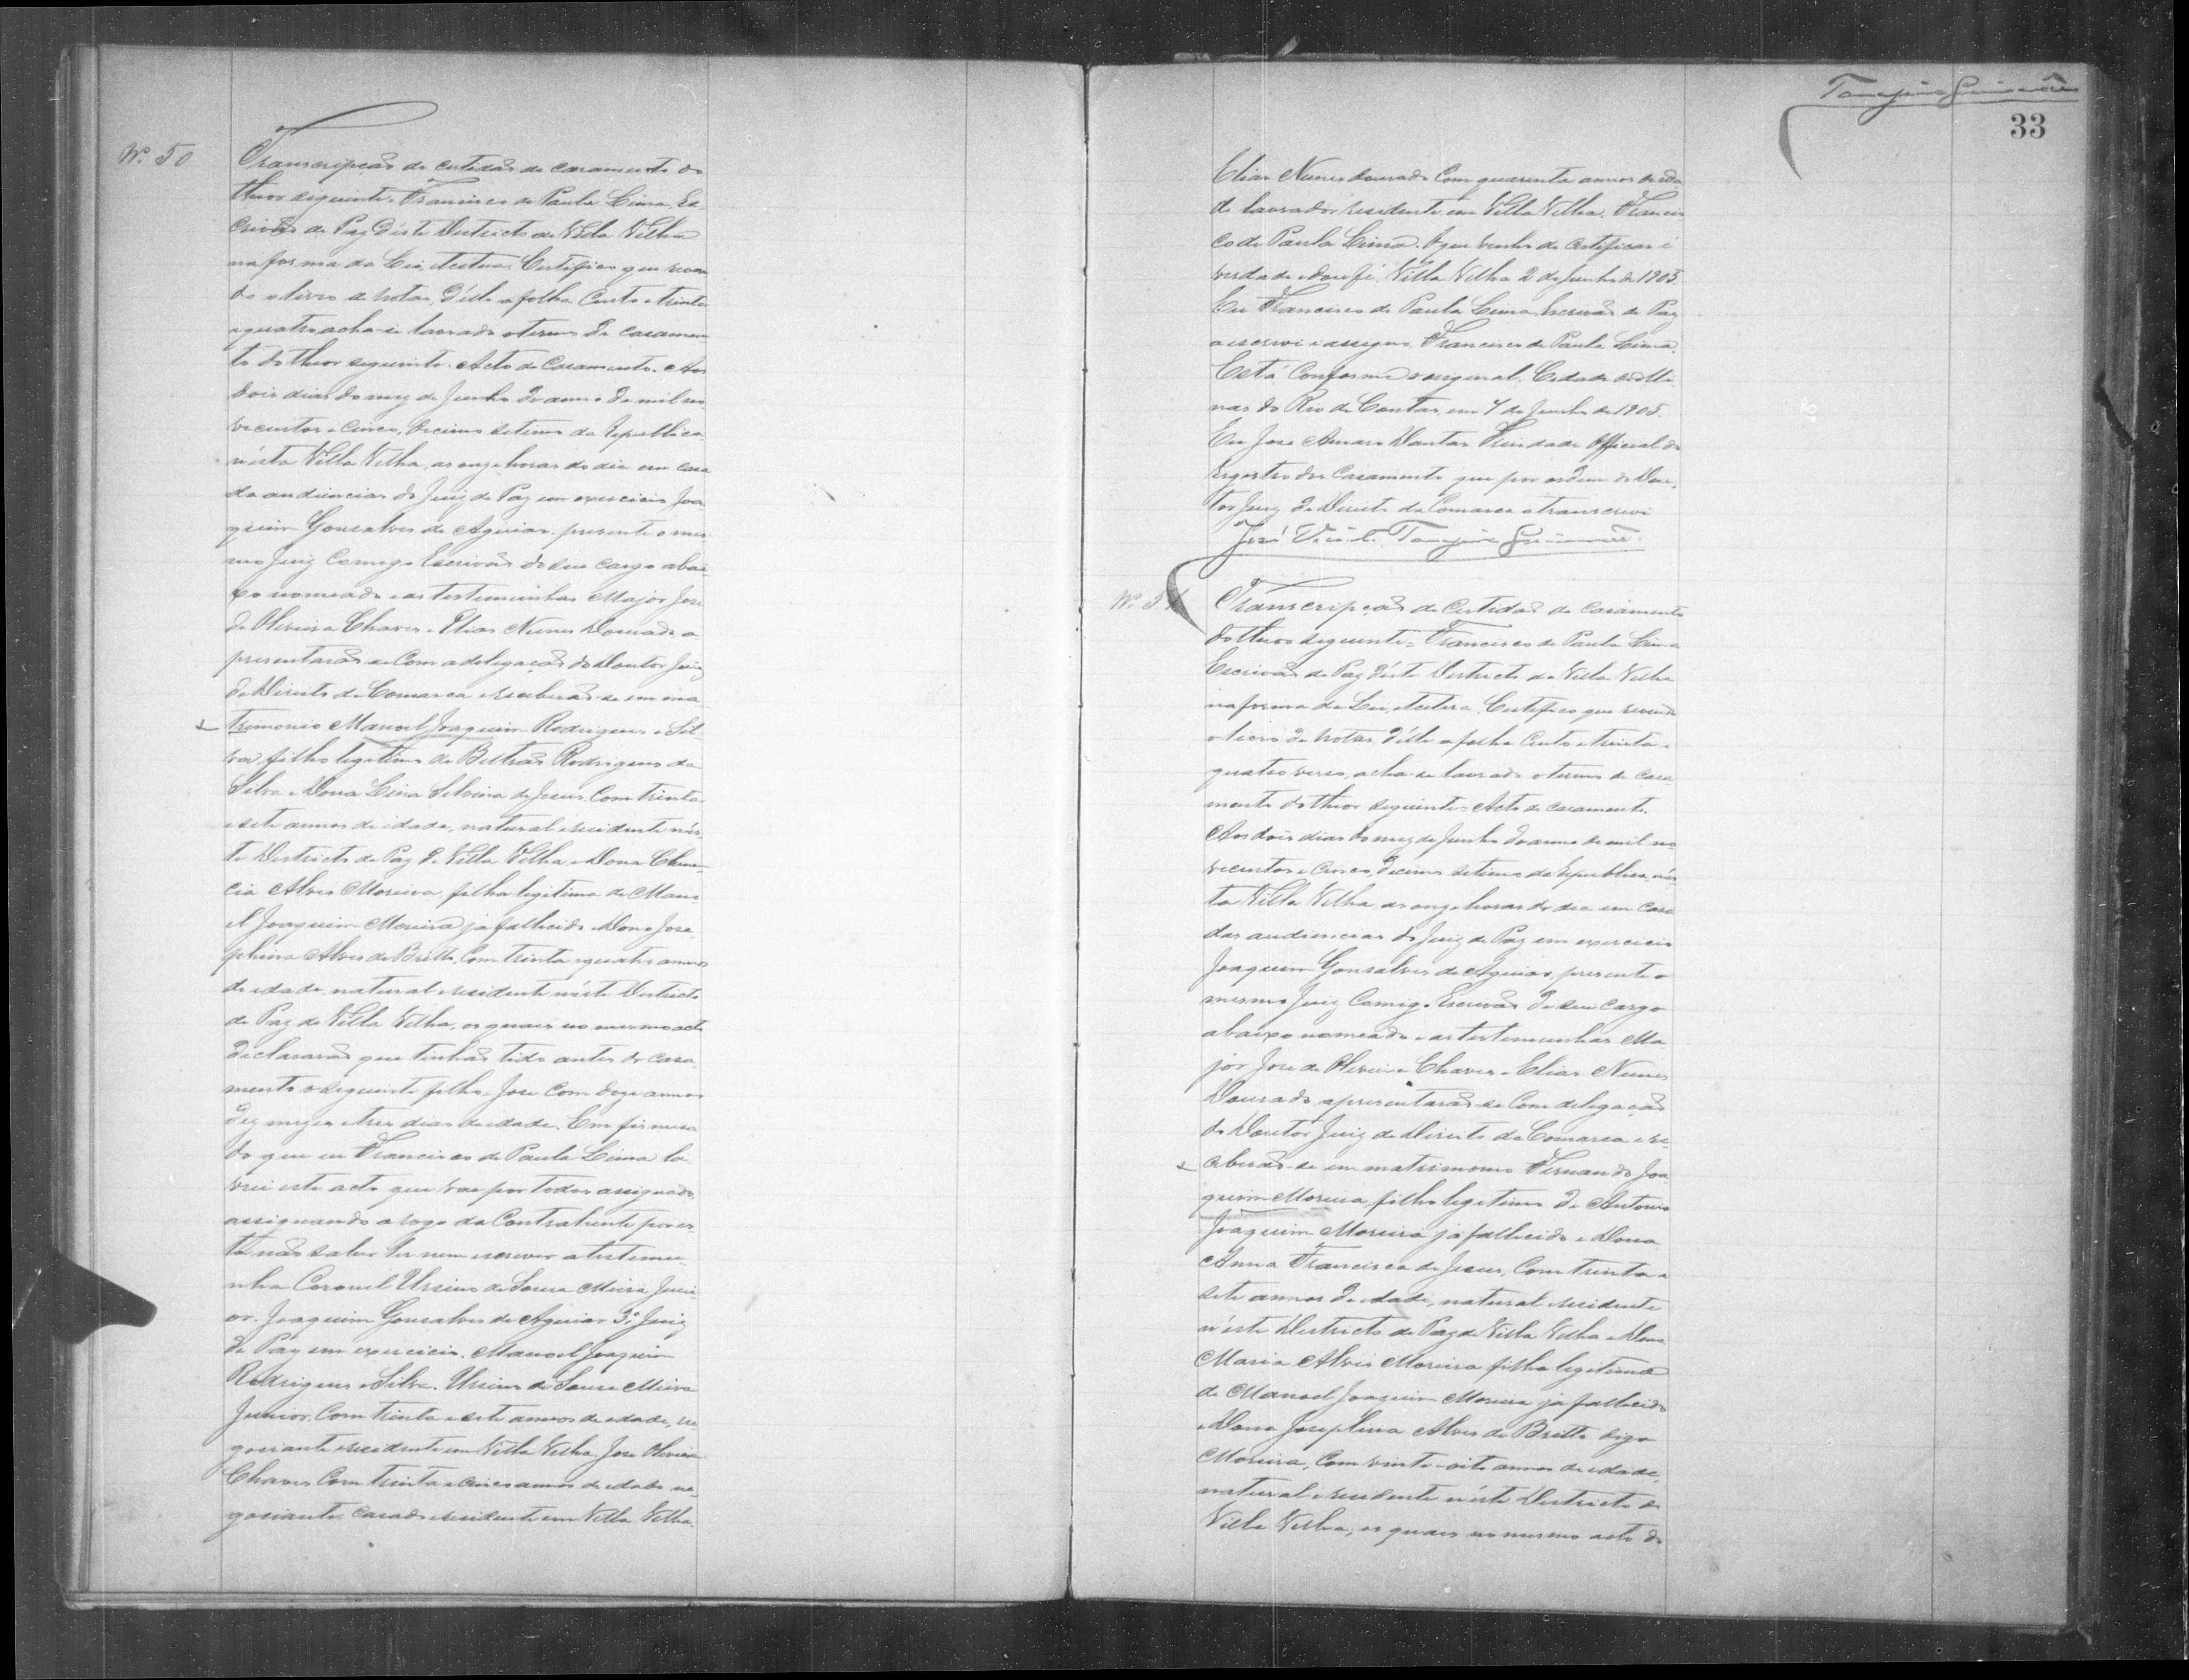 Nº. 50
Transcripção de certidão de casamento do
theor seguinte. Francisco de Paula Lima, Es-
crivão de Paz d'este Districto de Villa Velha
na forma da Lei, etectera. Certifico que reven-
do o livro de notas, d'elle a folha cento e trinta
e quatro acha-se lavrado o termo de casamen-
to do theor seguinte. Acto de Casamento. Aos
dois dias do mez de Junho do anno de mil no-
vecentos e cinco, decimo setimo da Republica,
n'esta Villa Velha, as onze horas do dia em casa
da audiencias do Juiz de Paz em exercicio Joa-
quim Gonsalves de Aguiar, presente o mes-
mo Juiz Comigo Escrivão do seu cargo abai-
xo nomeado e as testemunhas Major José
de Oliveira Chaves e Elias Nunes Dourado a-
presentarão-se Com a delegação do Doutor Juiz
de Direito da Comarca e receberão-se em ma-
trimonio Manoel Joaquim Rodrigues e Sil-
va, filho legitimo de Beltrão Rodrigues da
Silva e Dona Lina Silvina de Jesus, Com trinta
e sete annos de idade, natural e residente n'es-
te Districto de Paz de Villa Velha e Dona Clemen-
cia Alves Moreira, filha legitima de Mano-
el Joaquim Moreira já fallecido e Dona Jose-
phina Alves de Britto, Com trinta e quatro annos
de edade, natural e residente n'este Districto
de Paz de Villa Velha, os quaes no mesmo acto
declararão que tinhão tido antes do casa-
mento o seguinte filho. José com doze annos
dez mezes e tres dias de edade. Em firmesa
do que eu Francisco de Paula Lima la-
vrei este acto que vae por todos assignado,
assignando a rogo da Contrahente por es-
ta não saber ler nem escrever a testemu-
nha Coronel Ursino de Sousa Meira Juni-
or. Joaquim Gonsalves de Aguiar 3º. Juiz
de Paz em exercicio. Manoel Joaquim
Rodrigues e Silva. Ursino de Sousa Meira
Junior, Com trinta e sete annos de edade, ne-
gociante e residente em Villa Velha. José Oliveira
Chaves Com trinta e cinco annos de edade ne-
gociante, casado e residente em Villa Velha.
33
Elias Nunes Dourado Com quarenta annos de eda-
de lavrador residente em Villa Velha. Francis-
co de Paula Lima. O que venho de certificar é
verdade e dou fé. Villa Velha 2 de Junho de 1905.
Eu Francisco de Paula Lima, Escrivão de Paz
o escrevi e assigno. Francisco de Paula Lima.
Está Conforme o original. Cidade de Mi-
nas do Rio de Contas, em 7 de Junho de 1905.
Eu José Amaro Dantas Trindade Official do
Registro dos Casamentos que por ordem do Dou-
tor Juiz de Direito da Comarca o transcrevi
José
Nº. 51
Transcripção de Certidão de Casamento
do theor seguinte = Francisco de Paula Lima
Escrivão de Paz d'este Districto de Villa Velha
na forma da Lei, etcetera. Certifico que revendo
o livro de notas, d'elle a folha Cento e trinta e
quatro verso, acha-se lavrado o termo de casa-
mento do theor seguinte = Acto de casamento.
Aos dois dias do mez de Junho do anno de mil no-
vecentos e cinco, decimo setimo da Republica, n'es-
ta Villa Velha as onze horas do dia em casa
das audiencias do Juiz de Paz em exercicio
Joaquim Gonsalves de Aguiar, presente o
mesmo Juiz Comigo Escrivão do seu cargo
abaixo nomeado e as testemunhas Ma-
jor José de Oliveira Chaves e Elias Nunes
Dourado, apresentarão-se Com delegação
do Doutor Juiz de Direito da Comarca e re-
ceberão-se em matrimonio Fernando Joa-
quim Moreira, filho legitimo de Antonio
Joaquim Moreira já fallecido e Dona
Anna Francisca de Jesus, Com trinta e
sete annos de edade, natural e residente
n'este Districto de Paz de Villa Velha e Dona
Maria Alves Moreira filha legitima
de Manoel Joaquim Moreira já fallecido
e Dona Josephina Alves de Britto digo
Moreira, Com vinte e oito annos de edade,
natural e residente n'este Districto de
Villa Velha, os quaes no mesmo acto de